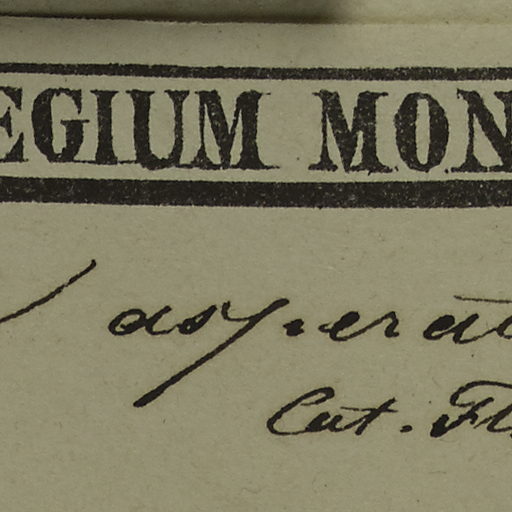 EGIUM MON
asperat
Cat. Fl